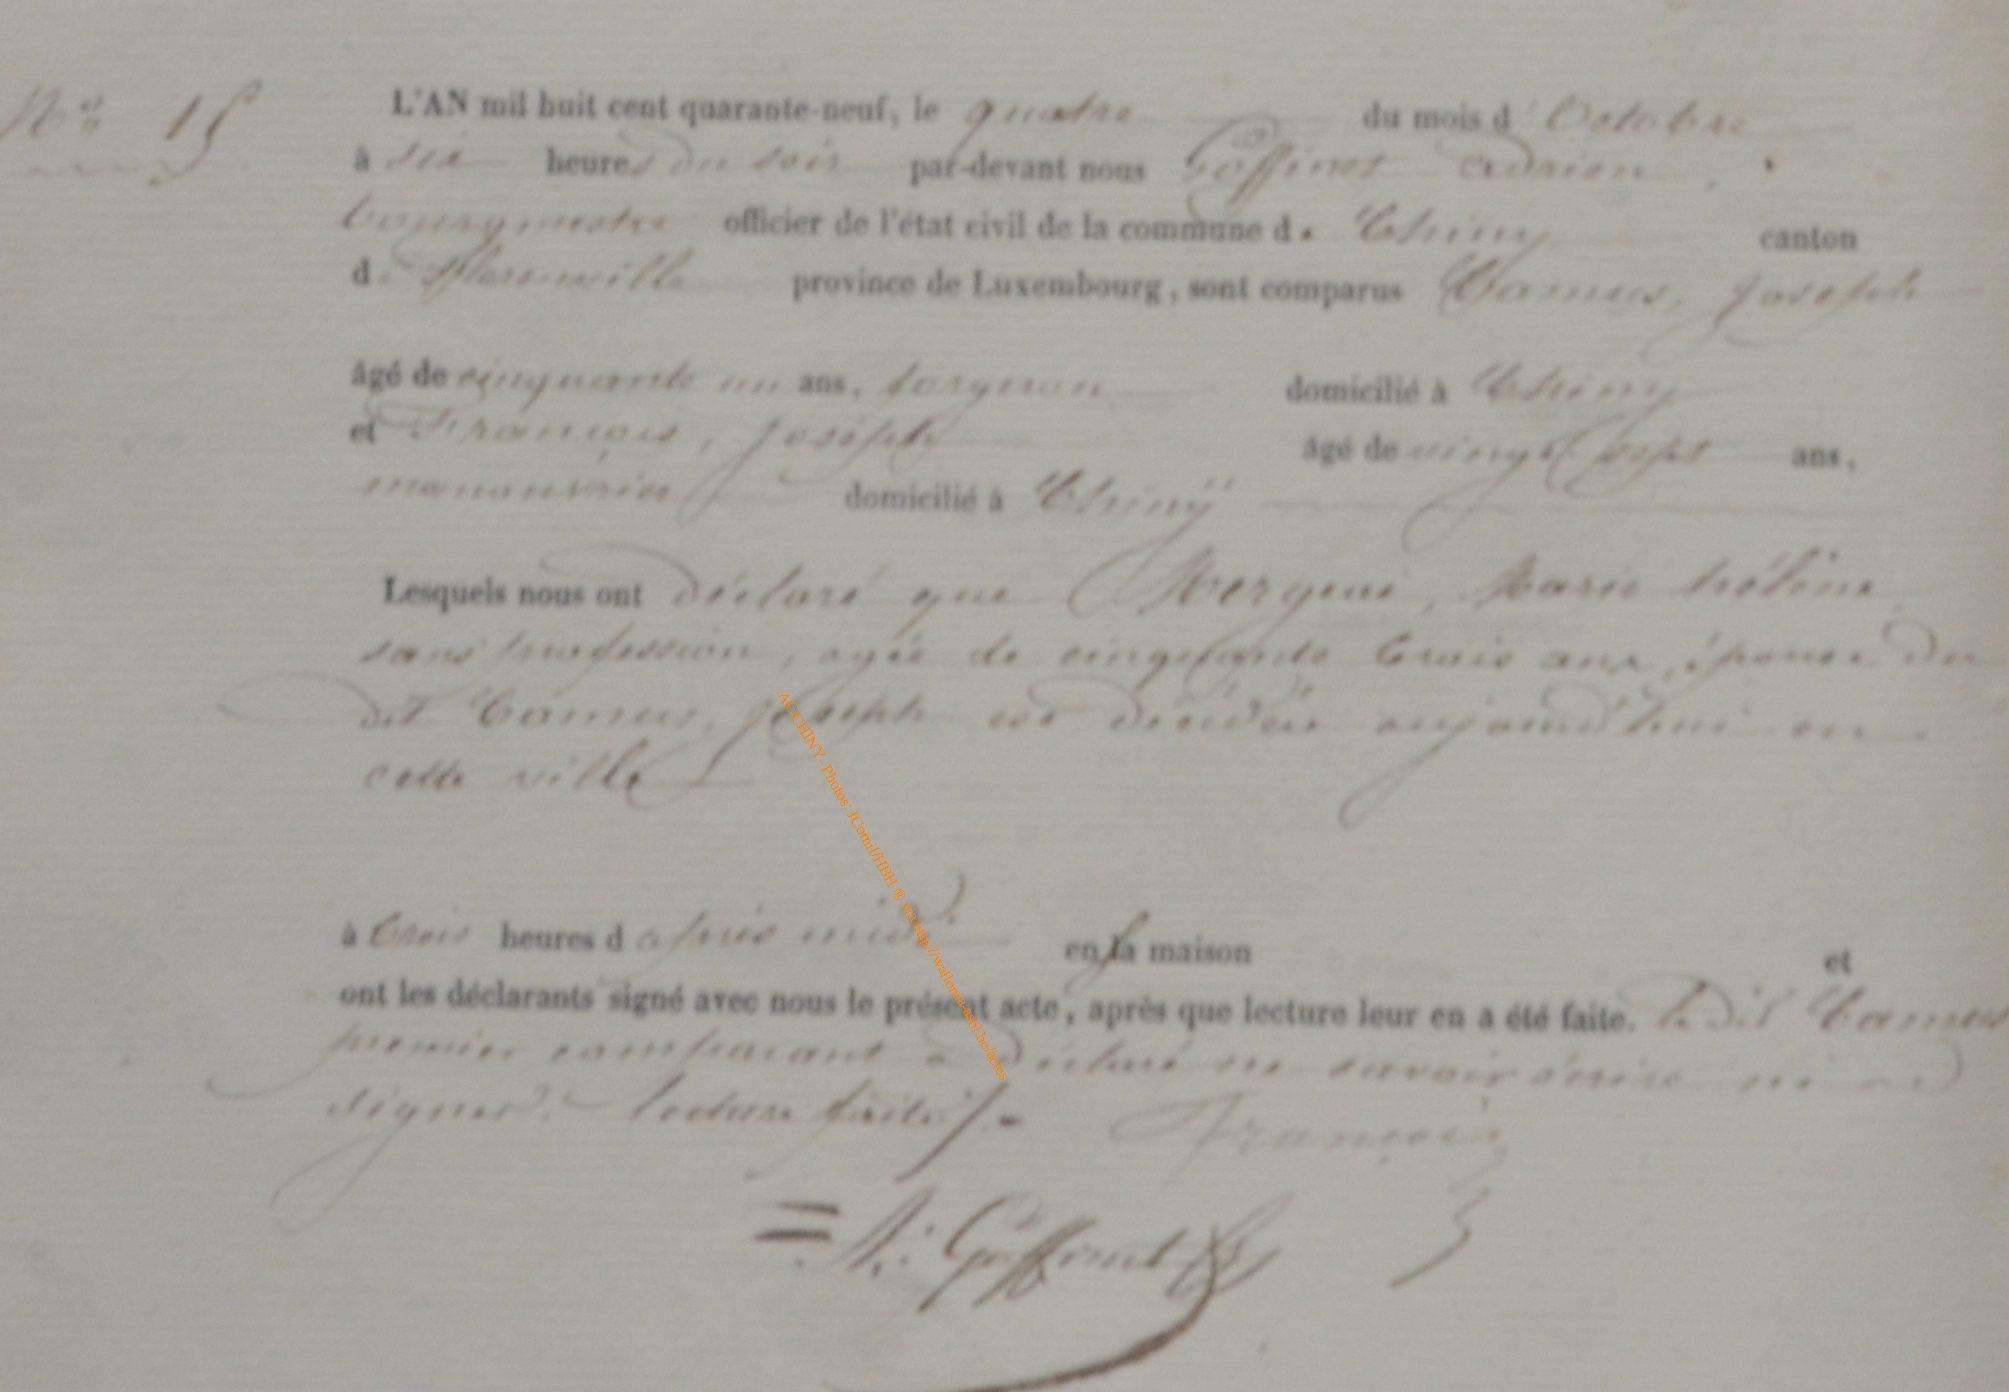 N° 15
L'AN mil huit cent quarante-neuf, le quatre du mois d'Octobre
à six heures du soir par-devant nous Goffinet Adrien,
bourgmestre officier de l'état civil de la commune de Chiny canton
de Florenville province de Luxembourg, sont comparus Camus, Joseph
âgé de cinquante un ans, forgeron domicilié à Chiny
et François, Joseph âgé de vingt sept ans,
manouvrier domicilié à Chinÿ
Lesquels nous ont déclaré que Mergeai, Marie hélène,
sans profession, agée de cinquante trois ans, épouse du
dit Camus, Joseph est décédée aujourd'hui en
cette ville
à trois heures d après midi en sa maison et
ont les déclarants signé avec nous le présent acte, après que lecture leur en a été faite. le dit Camus
premier comparant a déclaré ne savoir écrire ni
signer. lecture faite
François
A: Goffinet
ACCHINY- Photos: JComil/HBH © via http://wallonia-asbl.be/actes